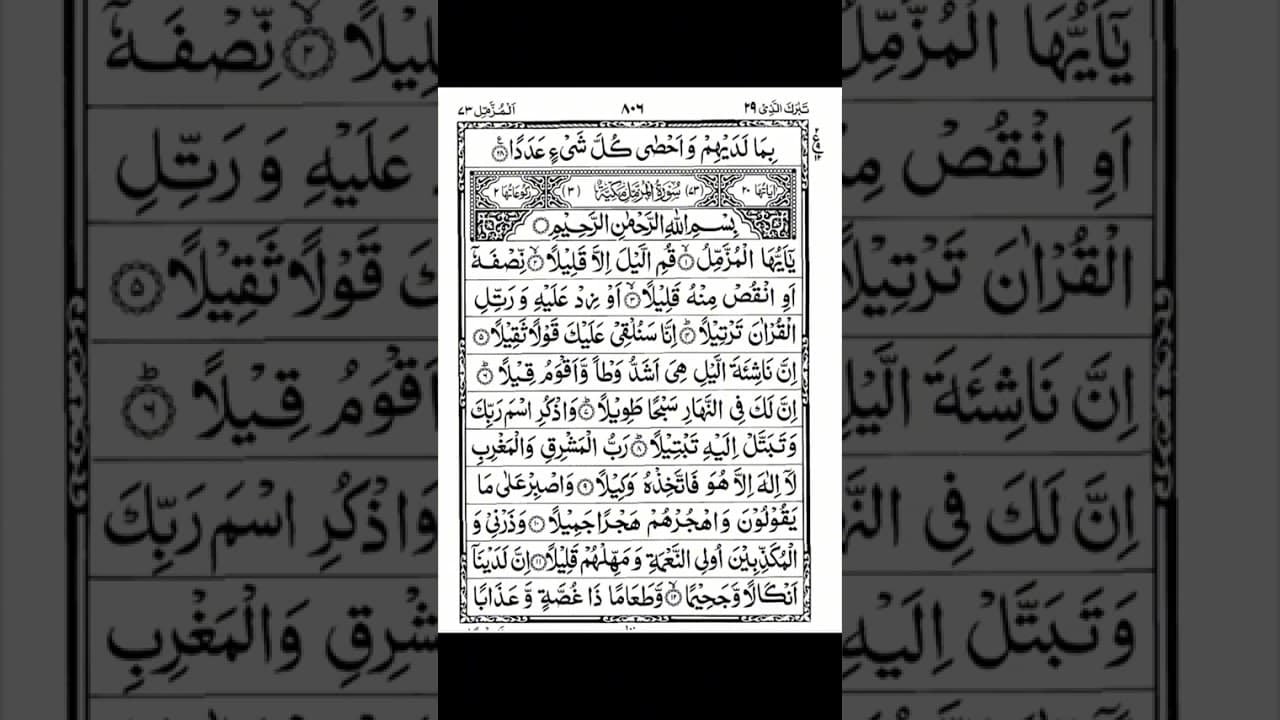 تَبٰرَكَ الَّذِیْ ۲۹ ۸۰۶ اَلْمُزَّمِّل ۷۳
بِمَا لَدَيْهِمْ وَ اَحْصٰى كُلَّ شَیْءٍ عَدَدًا ۲۸
اٰیَاتُهَا ۲۰ (۷۳) سُوْرَةُ الْمُزَّمِّلِ مَكِّيَّةٌ (۳) رُكُوْعَاتُهَا ۲
بِسْمِ اللّٰهِ الرَّحْمٰنِ الرَّحِيْمِ
يٰۤاَيُّهَا الْمُزَّمِّلُ ۱ قُمِ الَّيْلَ اِلَّا قَلِيْلًا ۲ نِّصْفَهٗۤ
اَوِ انْقُصْ مِنْهُ قَلِيْلًا ۳ اَوْ زِدْ عَلَيْهِ وَ رَتِّلِ
الْقُرْاٰنَ تَرْتِيْلًا ۴ اِنَّا سَنُلْقِیْ عَلَيْكَ قَوْلًا ثَقِيْلًا ۵
اِنَّ نَاشِئَةَ الَّيْلِ هِیَ اَشَدُّ وَطْاً وَّ اَقْوَمُ قِيْلًا ۶
اِنَّ لَكَ فِی النَّهَارِ سَبْحًا طَوِيْلًا ۷ وَ اذْكُرِ اسْمَ رَبِّكَ
وَ تَبَتَّلْ اِلَيْهِ تَبْتِيْلًا ۸ رَبُّ الْمَشْرِقِ وَ الْمَغْرِبِ
لَاۤ اِلٰهَ اِلَّا هُوَ فَاتَّخِذْهُ وَكِيْلًا ۹ وَ اصْبِرْ عَلٰى مَا
يَقُوْلُوْنَ وَ اهْجُرْهُمْ هَجْرًا جَمِيْلًا ۱۰ وَ ذَرْنِیْ وَ
الْمُكَذِّبِيْنَ اُولِی النَّعْمَةِ وَ مَهِّلْهُمْ قَلِيْلًا ۱۱ اِنَّ لَدَيْنَاۤ
اَنْكَالًا وَّ جَحِيْمًا ۱۲ وَّ طَعَامًا ذَا غُصَّةٍ وَّ عَذَابًا